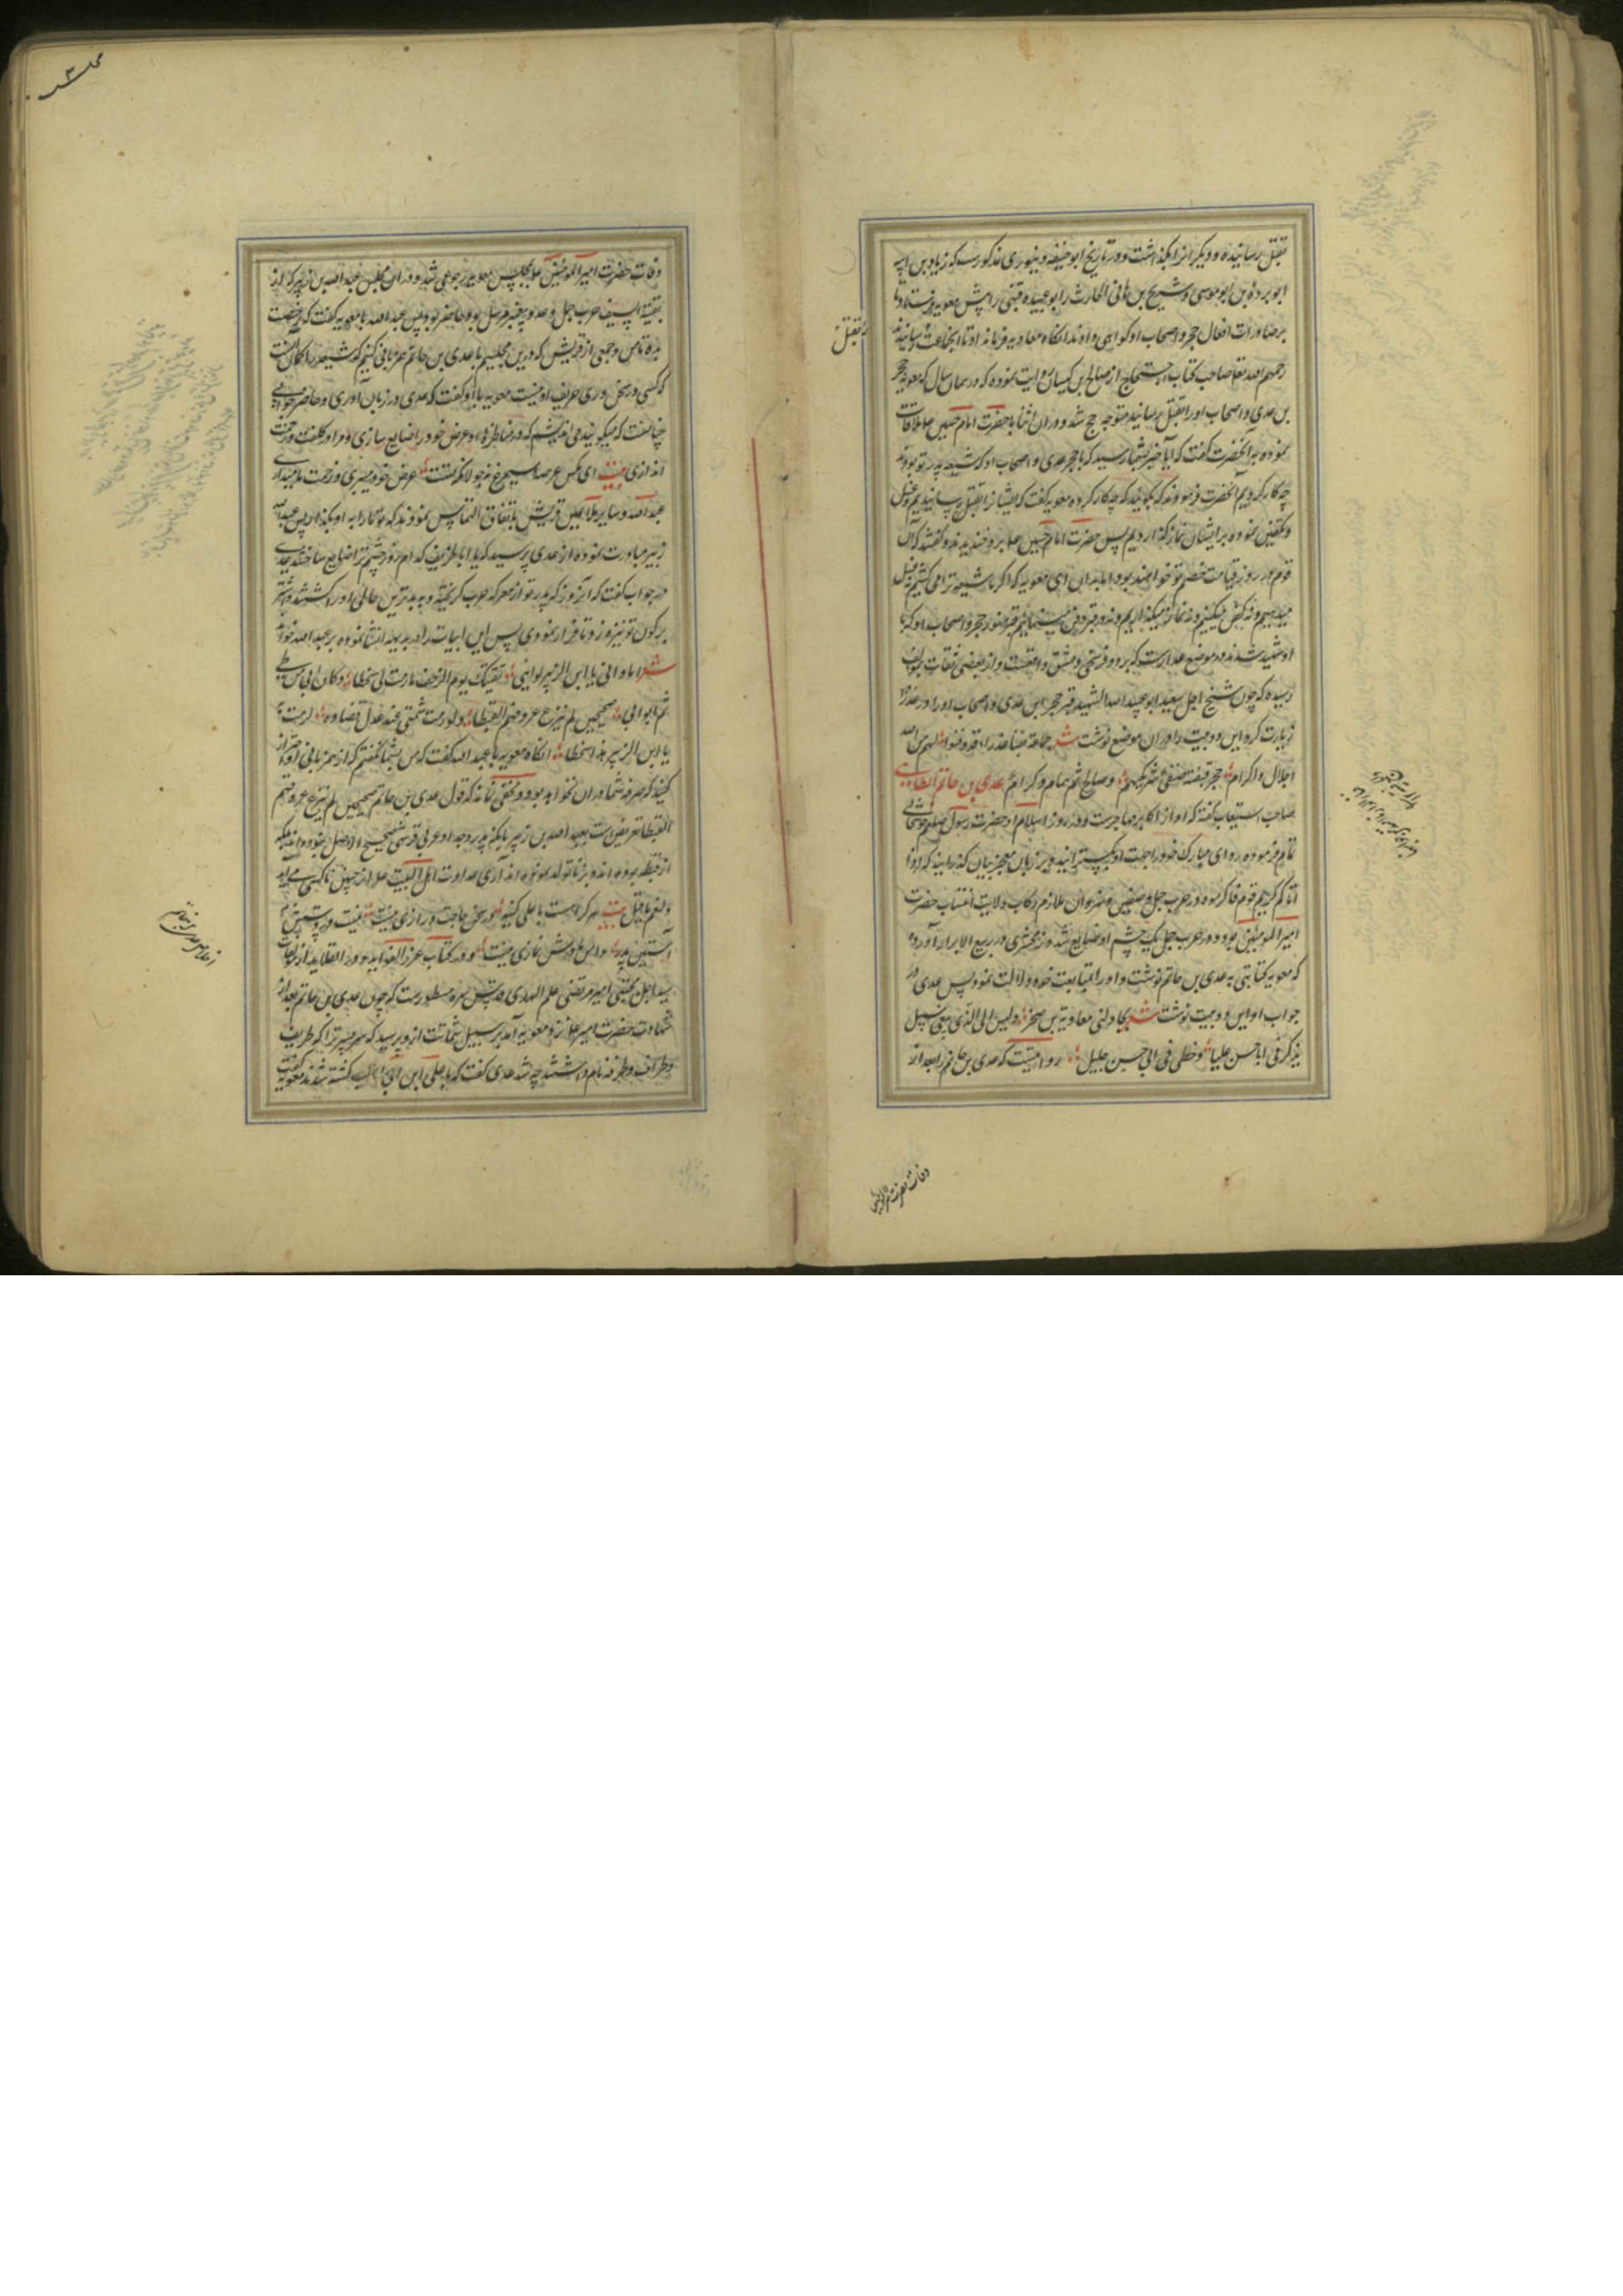 بقتل رسانیده و دیگرانرا بگذاشت و در تاریخ ابوحنیفه دینوری مذکورست که زیاد بن ابیه
ابو برده بن ابو موسی و شریح بن هانی الحارث را بو عبیده قینی را پیش معویه فرستاد تا
بر صادرات افعال حجر و اصحاب او گواهی دادند انگاه معاویه فرماند او تا انجماعت را رسانیدند
بقتل
رحمهم الله تعالی صاحب کتاب احتجاج از صالح بن کیسان روایت نموده که در همان سال که معویه حجر
بن عدی و اصحاب او را بقتل رسانید متوجه حج شد و در ان اثنا با حضرت امام حسین ع ملاقات
نموده به آنحضرت گفت که ایا خبر بشما رسید که با حجر عدی و اصحاب او که شیعه پدر تو بودند
چه کار کردیم آنحضرت فرمودند که بگوئید که چه کار کرده معویه گفت که ایشانرا بقتل رسانیدیم و غسل
و تکفین نموده بر ایشان نماز گذاردیم پس حضرت امام حسین ع بر او خندیدند و گفتند که آن
قوم در روز قیامت خصم تو خواهند بود اما بدان ای معویه که اگر ما شیعه ترا می کشیم نه غسل
میدهیم و نه کفن میکنیم و نه نماز میگذاریم و نه در قبر دفن مینمائیم قبر منور حجر و اصحاب او که با
او شهید شدند در موضع عذراست که بر دو فرسخی دمشق واقعست و از بعضی ثقات بمؤلف
رسیده که چون شیخ اجل سعید ابو عبد الله الشهید قبر حجر ابن عدی و اصحاب او را در عذرا
زیارت کرد این دو بیت را در ان موضع نوشت شعر جماعة بفنا عذرا قد دفنوا لهم من الله
اجلال و اکرام حجر قبیصة صیفی شریکهم و صالح ثم همام و کرام عدی بن حاتم الطایی
صاحب استیعاب گفته که او از اکابر مهاجرست و در روز اسلام او حضرت رسول صلعم خوشحالی
تمام فرموده ردای مبارک خود را جهت او بگسترانید و بر زبان معجز بیان گذرانید که اذا
اتاکم کریم قوم فاکرموه و در حرب جمل و صفین و نهروان ملازم رکاب ولایت انتساب حضرت
امیر المومنین بود و در حرب جمل یک چشم او ضایع شد و زمخشری در ربیع الابرار آورده
که معویه کتابتی به عدی بن حاتم نوشت و او را بمتابعت خود دلالت نمود پس عدی در
جواب او این دو بیت نوشت شعر یجادلنی معاویة بن صخر و لیس الی الذی یبغی سبیل
یذکرنی ابا حسن علیا و خطی فی ابی حسن جلیل روایتست که عدی بن حاتم را بعد از
وفات حضرت امیر المومنین
وفات حضرت امیر المومنین ع بمجلس معویه رجوعی شد و در ان مجلس عبد الله بن زبیر که از
بقیة السیف حرب جمل و عدو پیغمبر مرسل بود حاضر بود پس عبد الله با معویه گفت که رخصت
بده تا من و جمعی از قریش که درین مجلسیم با عدی بن حاتم هم زبانی کنیم که شیعه را گمان آنست
که کسی در سخن وری حریف او نیست معویه با او گفت که عدی در زبان آوری و حاضر جوابی
چنانست که میگویند می اندیشم که در مناظره با او عرض خود را ضایع سازی و مرا در کلفت و زحمت
اندازی بیت ای مگس عرصه سیمرغ نه جولانگه تست عرض خود میبری و زحمت ما میداری
عبد الله و سایر ملاعین قریش باتفاق التماس نمودند که تو ما را به او بگذار پس عبد الله
زبیر مبادرت نموده از عدی پرسید که یا ابا طریف کدام روز چشم ترا ضایع ساختند عدی
در جواب گفت که آنروز که پدر تو از معرکه حرب گریخته و به بدترین حالی او را کشتند و اشتر
بر کون تو نیزه زد تا فرار نمودی پس این ابیات را در بدیهه انشا نموده بر عبد الله خواند
شعر اما و ابی یا ابن الزبیر لو اننی لقیتک یوم الزحف ما رمت لی سخطا و کان ابی من طی
ثم ابو ابی صحیحین لم ینزع عروقهم القبطا و لو رمت شتمی عند عدل قضاوه لرمت به
یا ابن الزبیر بذا سخطا انگاه معویه با عبد الله گفت که من بشما نگفتم که از همزبانی او احتراز
کنید که صرفه شما در ان نخواهد بود و مخفی نماند که قول عدی بن حاتم صحیحین لم ینزع عروقهم
القبطا تعریض است بعبد الله بن زبیر بانکه پدر و جد او عربی قرشی صحیح الاصل نبوده اند بلکه
از قبطه بوده اند و بزنا تولد نموده اند آری عداوت اهل البیت ع از چنین ناکسی می آید
و لنعم ما قیل بیت هر کرا هست با علی کینه در سخن حاجت درازی نیست نیست در دستش
آستین پدر دامن مادرش نمازی نیست و در کتاب غرر الفوائد و درر القلاید از مؤلفات
سید اجل مجتبی امیر مرتضی علم الهدی قدس سره مسطورست که چون عدی بن حاتم بعد از
شهادت حضرت امیر ع نزد معویه آمد بر سبیل شماتت ازو پرسید که سه پسر ترا که طریف
و طراف و طرفه نام داشتند چه شد عدی گفت که با علی ابن ابی طالب کشته شدند معویه گفت